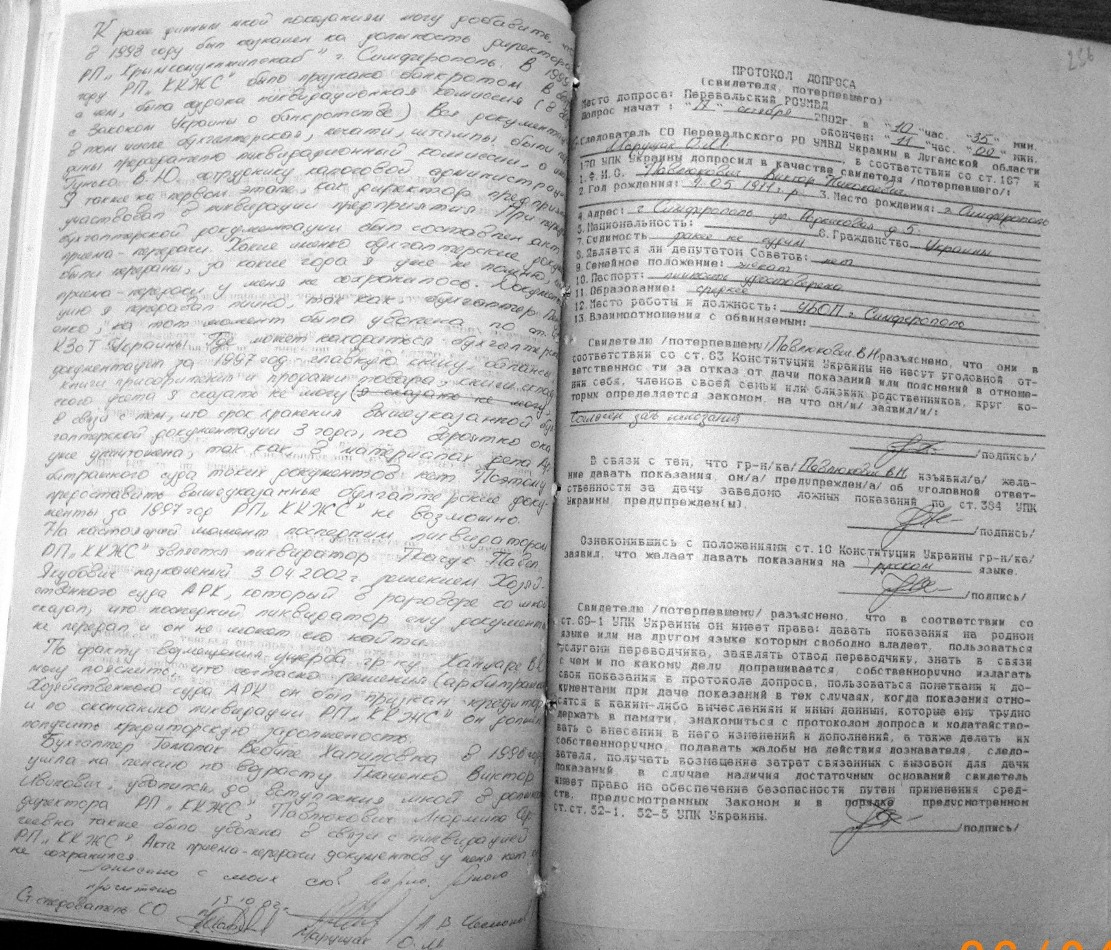 К ранее данным мной показаниям могу добавить, что
в 1998 году был назначен на должность директора
РП „Крымкоммунжилснаб" г. Симферополь. В 1999
году РП „ККЖС" было признано банкротом. В
с чем, была создана ликвидационная комиссия (в
с Законом Украины о банкротстве) Вся документация
в том числе бухгалтерская, печати, штампы были
переданы ликвидационной комиссии, а
Гунько В.Ю. сотруднику налоговой администрации
Я также на первом этапе, как директор предприятия
участвовал в ликвидации предприятия. При передаче
бухгалтерской документации был составлен акт
приема-передачи. Какие именно бухгалтерские документы
были переданы, за какие года я уже не помню,
приема-передачи у меня не сохранилось. Документа
цию я передавал лично, так как бухгалтер
на тот момент была уволена по ст.
КЗоТ Украины. Где может находиться бухгалтерская
документация за 1997 год: главную книгу, балансы
книги приобретения и продажи товара, книги склад
ского учета я сказать не могу (я сказать не могу)
в связи с тем, что срок хранения вышеуказанной бух
галтерской документации 3 года, то вероятно она
уже уничтожена, так как в материалах дела Ар
битражного суда таких документов нет. Поэтому
предоставить вышеуказанные бухгалтерские доку-
менты за 1997 год РП „ККЖС" не возможно.
На настоящий момент последним ликвидатором
РП „ККЖС" является ликвидатор Ткачук Павел
Якубович назначенный 3.04.2002 г. решением Хозяй-
ственного суда АРК, который в разговоре со мной
сказал, что последний ликвидатор ему документы
не передал и он не может его найти.
По факту возмещения ущерба гр-ну
могу пояснить, что согласно решения (арбитражного)
Хозяйственного суда АРК он был признан кредитором
и по окончанию ликвидации РП „ККЖС" он должен
получить кредиторскую задолженность.
Бухгалтер Халиловна в 1998 году
ушла на пенсию по возрасту. Ткаченко Виктор
Иванович, уволился до вступления мной в должность
директора РП „ККЖС", Павлюкович Людмила Сер
геевна также была уволена в связи с ликвидацией
РП „ККЖС". Акта приема-передачи документов у меня нет и
не сохранился.
Записано с моих слов верно. Мною
прочитано
15.10.02 г.
Ст следователь СО Марущак О.Ив.
236
ПРОТОКОЛ ДОПРОСА
(свидетеля, потерпевшего)
Место допроса: Перевальский РОУМВД
Допрос начат: "17" октября 2002г. в "10" час. "35" мин.
окончен: "11" час. "00" мин.
Следователь СО Перевальского РО УМВД Украины в Луганской области
Марущак О.Ив., в соответствии со ст.167 и
170 УПК Украины допросил в качестве свидетеля /потерпевшего/:
1. Ф.И.О. Павлюкович Виктор Николаевич
2. Год рождения: 9.05.1971 г.р. 3. Место рождения: г. Симферополь
4. Адрес: г. Симферополь ул. д 5.
5. Национальность: 6. Гражданство Украины
7. Судимость ранее не судим
8. Является ли депутатом Советов: нет
9. Семейное положение: женат
10. Паспорт: личность удостоверена
11. Образование: среднее
12. Место работы и должность: УБОП г. Симферополь
13. Взаимоотношения с обвиняемым:
Свидетелю /потерпевшему/ Павлюкович В.Н разъяснено, что они в
соответствии со ст.63 Конституции Украины не несут уголовной от-
ветственнос ти за отказ от дачи показаний или пояснений в отноше-
нии себя, членов своей семьи или близких родственников, круг ко-
торых определяется законом, на что он/и/ заявил/и/:
Согласен дать показания
/подпись/
В связи с тем, что гр-н/ка/ Павлюкович В.Н. изъявил/а/ жела-
ние давать показания, он/а/ предупрежден/а/ об уголовной ответ-
ственности за дачу заведомо ложных показаний по ст.384 УПК
Украины, предупрежден(ы).
/подпись/
Ознакомившись с положениями ст.10 Конституции Украины гр-н/ка/
заявил, что желает давать показания на русском языке.
/подпись/
Свидетелю /потерпевшему/ разъяснено, что в соответствии со
ст.69-1 УПК Украины он имеет права: давать показания на родном
языке или на другом языке которым свободно владеет, пользоваться
услугами переводчика, заявлять отвод переводчику, знать в связи
с чем и по какому делу допрашивается собственноручно излагать
свои показания в протоколе допроса, пользоваться пометками и до-
кументами при даче показаний в тех случаях, когда показания отно-
сятся к каким-либо вычеслениям и иным данным, которые ему трудно
держать в памяти, знакомиться с протоколом допроса и ходатайство-
вать о внесении в него изменений и дополнений, а также делать их
собственноручно, подавать жалобы на действия дознавателя, следо-
вателя, получать возмещение затрат связанных с вызовом для дачи
показаний, в случае наличия достаточных оснований свидетель
имеет право на обеспечение безопасности путем применения сред-
ств, предусмотренных Законом и в порядке предусмотренном
ст.ст.52-1, 52-5 УПК Украины.
/подпись/